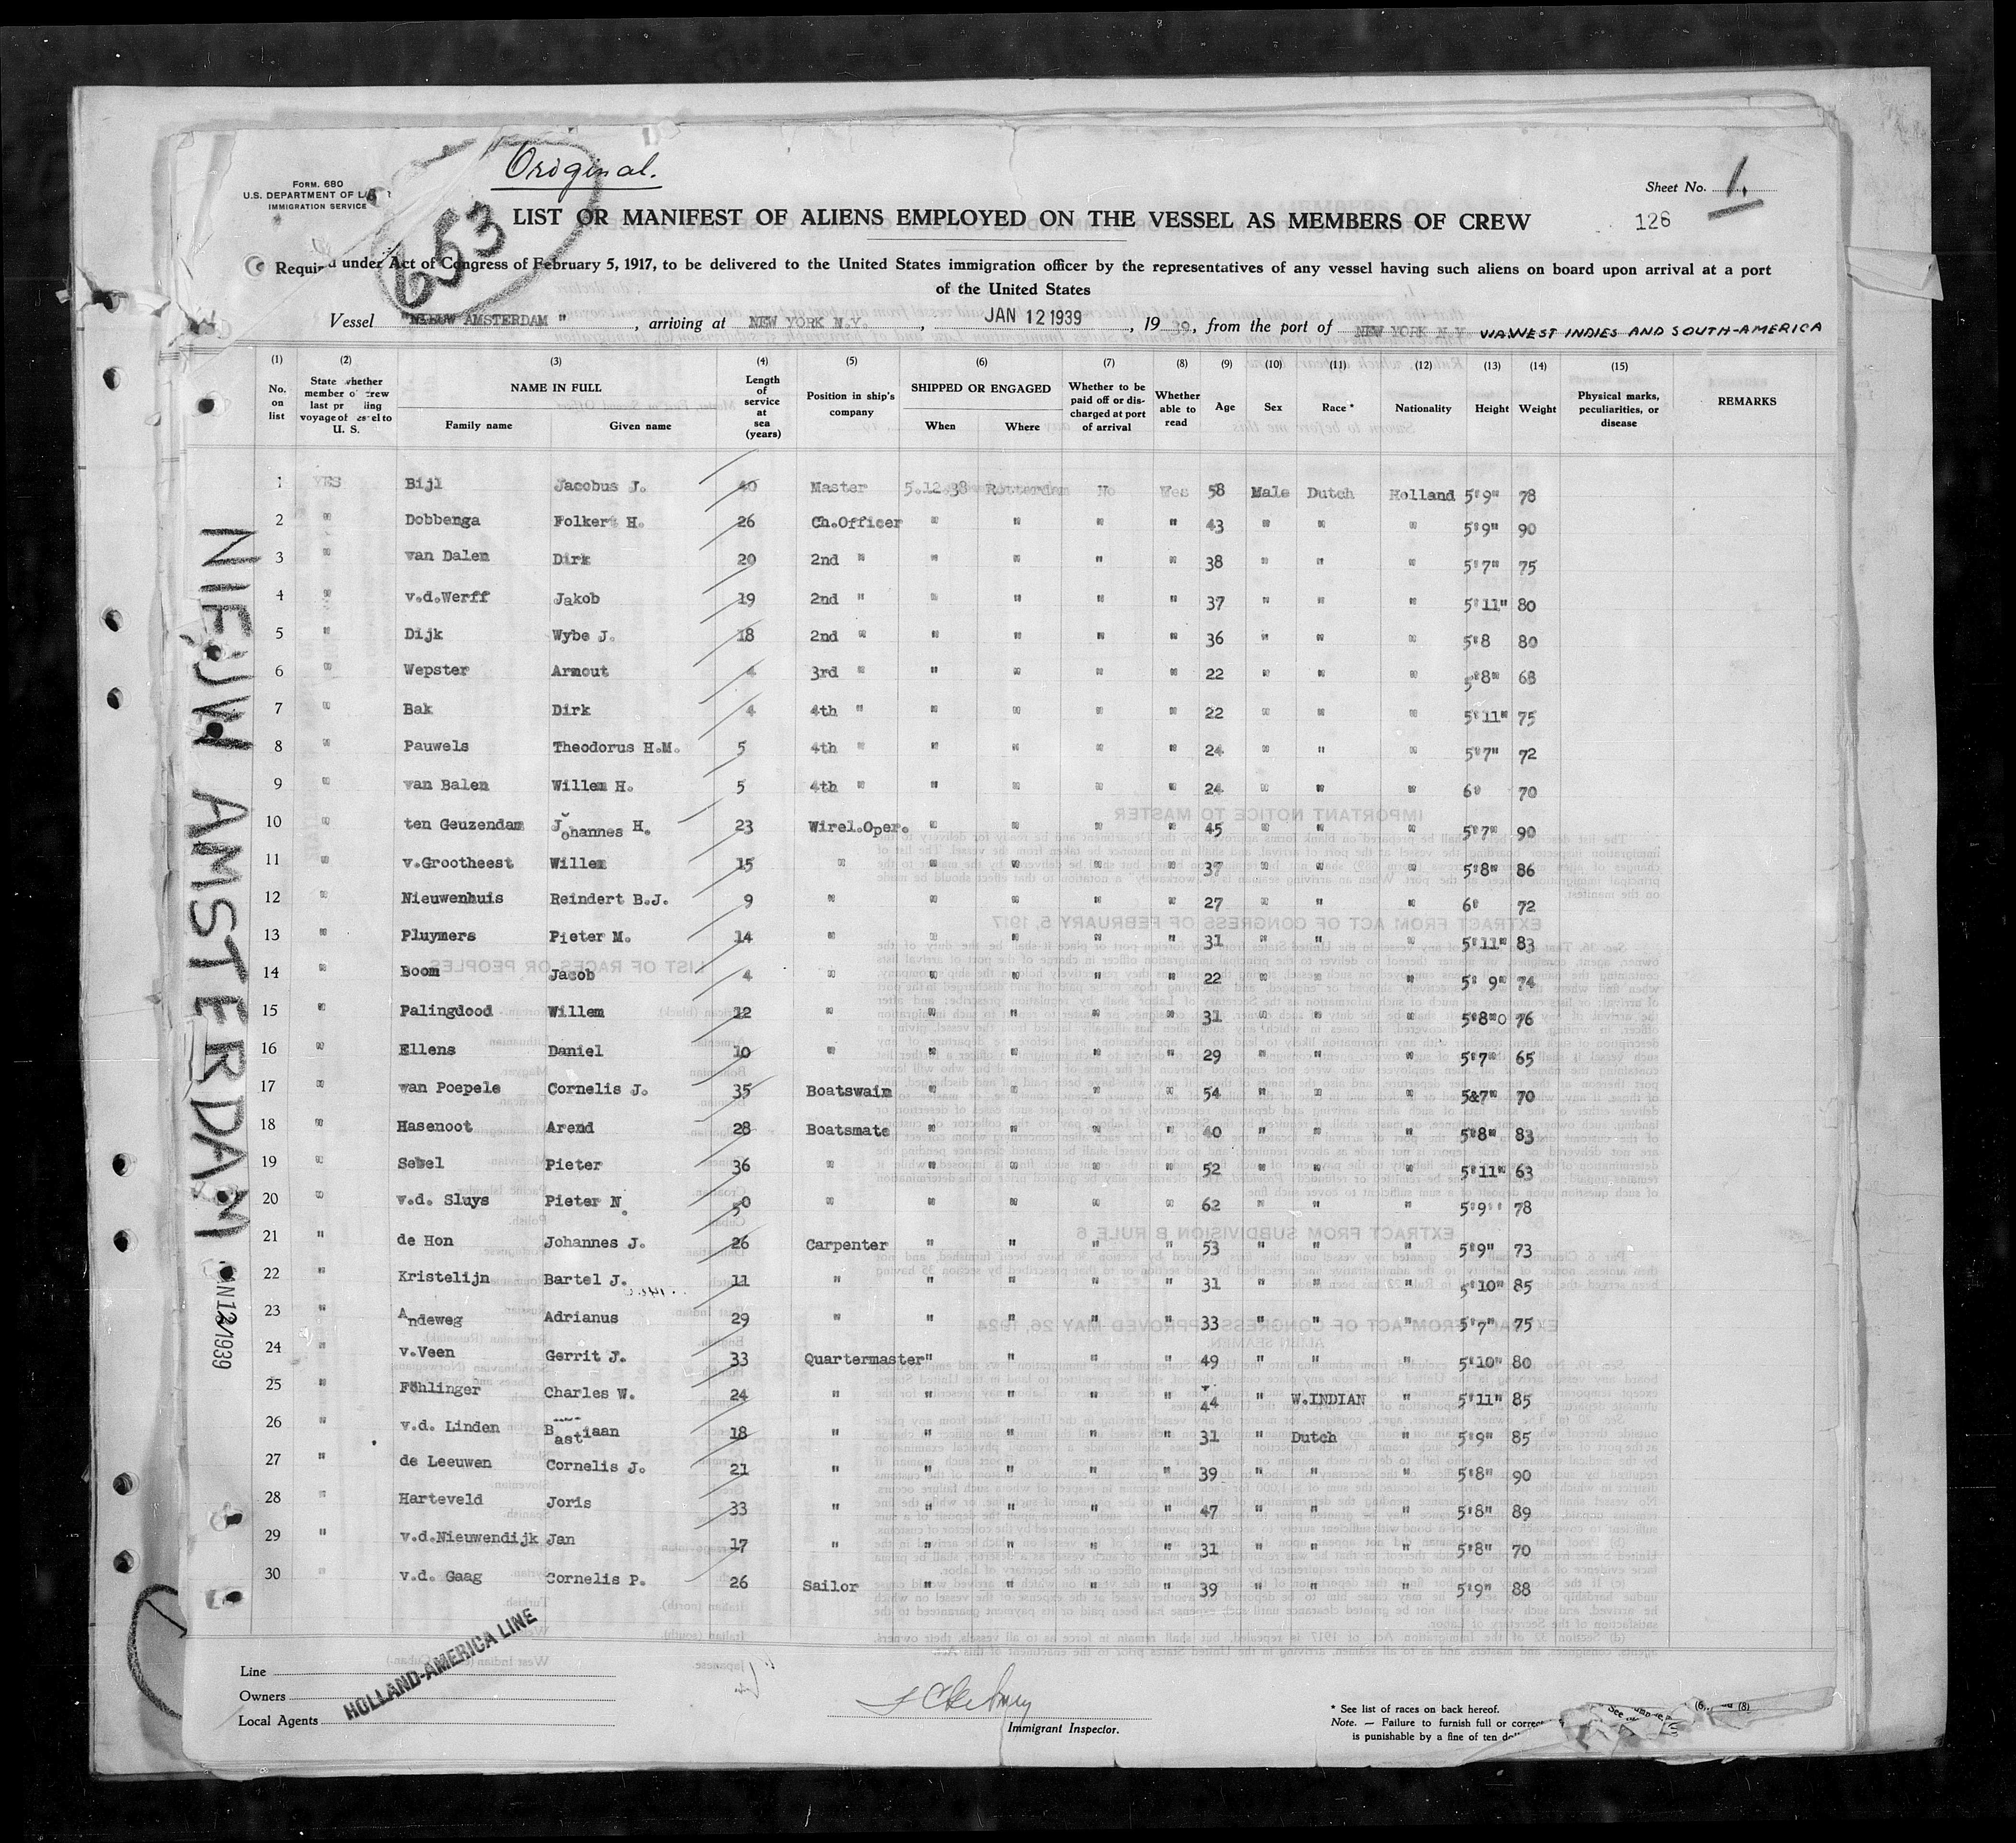 Original.
FORM. 680
U.S. DEPARTMENT OF
IMMIGRATION SERVICE
653
Sheet No. 1.
126
LIST OR MANIFEST OF ALIENS EMPLOYED ON THE VESSEL AS MEMBERS OF CREW
Required under Act of Congress of February 5, 1917, to be delivered to the United States immigration officer by the representatives of any vessel having such aliens on board upon arrival at a port
of the United States
Vessel "NIEUW AMSTERDAM ", arriving at NEW YORK N.Y., JAN 12 1939, 19 39, from the port of NEW YORK N.Y. VIA WEST INDIES AND SOUTH-AMERICA
(1) (2) (3) (4) (5) (6) (7) (8) (9) (10) (11) (12) (13) (14) (15)
No. on list | State whether member of crew last pr ling voyage of vessel to U. S. | NAME IN FULL Family name Given name | Length of service at sea (years) | Position in ship's company | SHIPPED OR ENGAGED When Where | Whether to be paid off or discharged at port of arrival | Whether able to read | Age | Sex | Race * | Nationality | Height | Weight | Physical marks, peculiarities, or disease | REMARKS
1 YES Bijl Jacobus J. 40 Master 5.12.38 Rotterdam No Wes 58 Male Dutch Holland 5'9" 78
2 " Dobbenga Folkert H. 26 Ch.Officer " " " " 43 " " " 5'9" 90
3 " van Dalen Dirk 20 2nd " " " " " 38 " " " 5'7" 75
4 " v.d.Werff Jakob 19 2nd " " " " " 37 " " " 5'11" 80
5 " Dijk Wybe J. 18 2nd " " " " " 36 " " " 5'8 80
6 " Wepster Arnout 4 3rd " " " " " 22 " " " 5'8" 68
7 " Bak Dirk 4 4th " " " " " 22 " " " 5'11" 75
8 " Pauwels Theodorus H.M. 5 4th " " " " " 24 " " " 5'7" 72
9 " van Balen Willem H. 5 4th " " " " " 24 " " " 6' 70
10 " ten Geuzendam Johannes H. 23 Wirel.Oper. " " " " 45 " " " 5'7" 90
11 " v.Grootheest Willem 15 " " " " " 37 " " " 5'8" 86
12 " Nieuwenhuis Reindert B.J. 9 " " " " " 27 " " " 6' 72
13 " Pluymers Pieter M. 14 " " " " " 31 " " " 5'11" 83
14 " Boom Jacob 4 " " " " " 22 " " " 5' 9" 74
15 " Palingdood Willem 12 " " " " " 31 " " " 5'8"0 76
16 " Ellens Daniel 10 " " " " " 29 " " " 5'7" 65
17 " van Poepele Cornelis J. 35 Boatswain " " " " 54 " " " 5&7" 70
18 " Hasenoot Arend 28 Boatsmate " " " " 40 " " " 5'8" 83
19 " Sebel Pieter 36 " " " " " 52 " " " 5'11" 63
20 " v.d. Sluys Pieter N. 50 " " " " " 62 " " " 5'9" 78
21 " de Hon Johannes J. 26 Carpenter " " " " 53 " " " 5'9" 73
22 " Kristelijn Bartel J. 11 " " " " " 31 " " " 5'10" 85
23 " Andeweg Adrianus 29 " " " " " 33 " " " 5'7" 75
24 " v.Veen Gerrit J. 33 Quartermaster " " " " 49 " " " 5'10" 80
25 " Föhlinger Charles W. 24 " " " " " 44 " W.INDIAN " 5'11" 85
26 " v.d. Linden Bastiaan 18 " " " " " 31 " Dutch " 5'9" 85
27 " de Leeuwen Cornelis J. 21 " " " " " 39 " " " 5'8" 90
28 " Harteveld Joris 33 " " " " " 47 " " " 5'8" 89
29 " v.d.Nieuwendijk Jan 17 " " " " " 31 " " " 5'8" 70
30 " v.d. Gaag Cornelis P. 26 Sailor " " " " 39 " " " 5'9" 88
NIEUW AMSTERDAM
12 1939
Line
Owners
Local Agents
HOLLAND-AMERICA LINE
Immigrant Inspector.
* See list of races on back hereof.
Note. — Failure to furnish full or
is punishable by a fine of ten